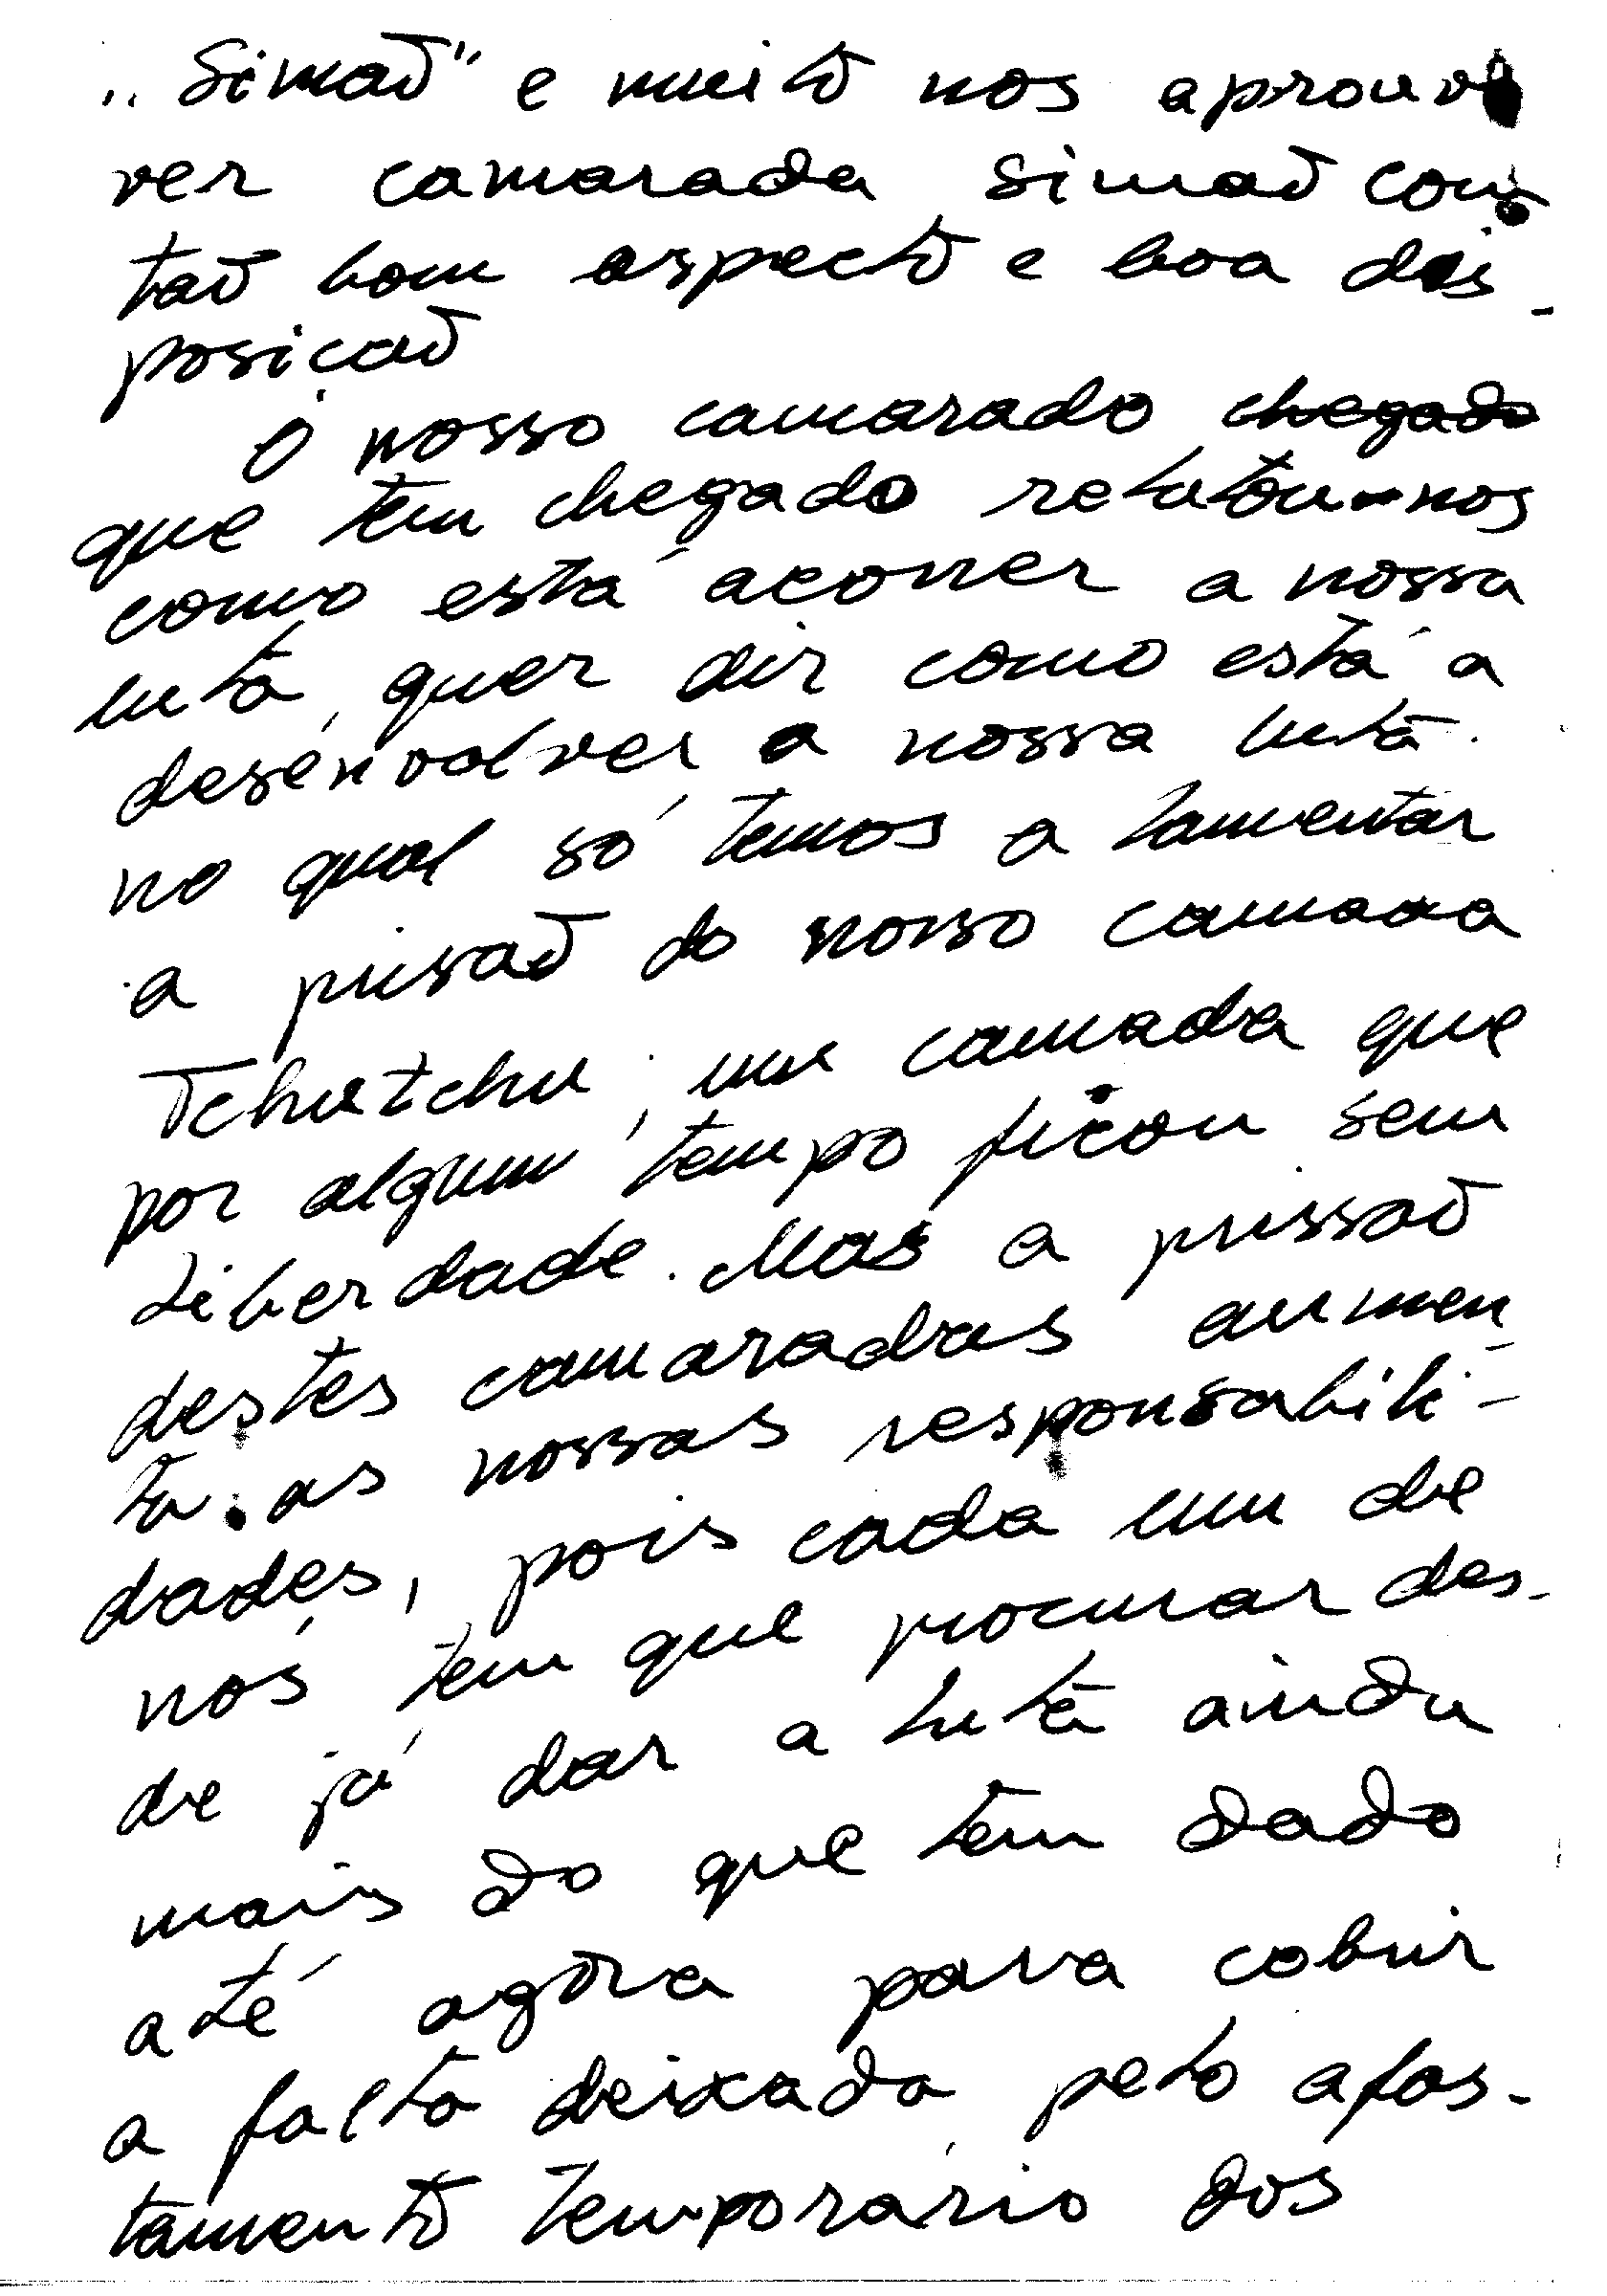 "Simaõ" e muito nos aprouve
ver camarada Simaõ com
taõ bom aspecto e boa dis-
posicaõ
O nosso camarado chegado
que tem chegado relatou-nos
como está acorrer a nossa
luta, quer dir como está a
desenvolver a nossa luta.
no qual só temos a lamentar
a prisaõ do nosso camaaa
Tchutchu, um camada que
por algum tempo ficou sem
Liberdade. Mas a prissaõ
destes camaradas aumen
ta as nossas responsabili-
dades, pois cada um de
nós tem que procurar des-
de já dar a luta ainda
mais do que tem dado
até agora para cobrir
a falta deixada pelo afas-
tamento temporário dos